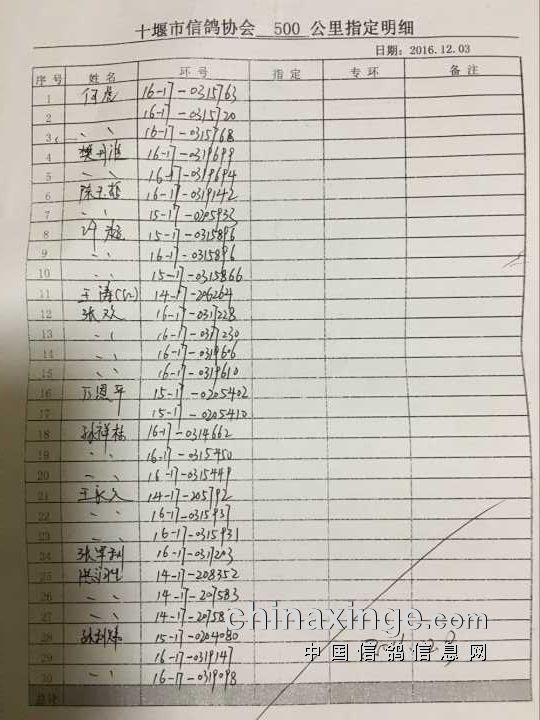 十堰市信鸽协会 500 公里指定明细
日期: 2016.12.03
序号 姓名 环号 指定 专环 备注
1 何虎 16-17-0315763
2 16-17-0315720
3 〃 16-17-0315768
4 16-17-0319699
5 〃 16-17-0319694
6 16-17-0319142
7 〃 15-17-0205932
8 15-17-0315896
9 〃 16-17-0315896
10 〃 15-17-0315866
11 王涛 14-17-206264
12 张欢 16-17-0317228
13 〃 16-17-0317230
14 〃 16-17-0319606
15 〃 16-17-0319610
16 万恩平 15-17-0205402
17 15-17-0205410
18 孙祥林 16-17-0314662
19 〃 16-17-0315450
20 〃 16-17-0315449
21 王永久 14-17-205792
22 〃 16-17-0315937
23 〃 16-17-0315931
24 张军利 16-17-0317203
25 14-17-208352
26 〃 14-17-207583
27 〃 14-17-20758
28 15-17-0204080
29 16-17-0319147
30 〃 16-17-0319098
总计
chinaxinge.com
中国信鸽信息网